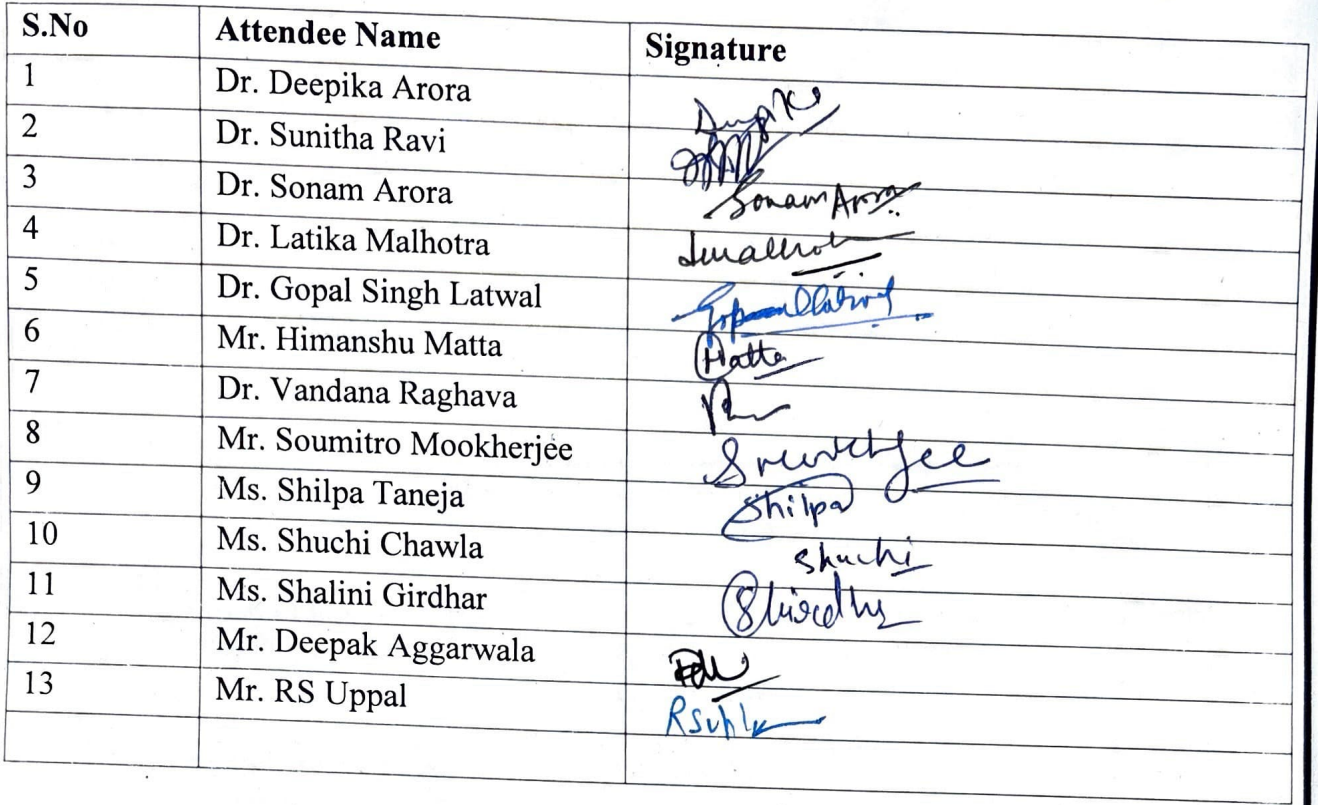 S.No Attendee Name Signature
1 Dr. Deepika Arora
2 Dr. Sunitha Ravi
3 Dr. Sonam Arora Sonam Arora
4 Dr. Latika Malhotra
5 Dr. Gopal Singh Latwal
6 Mr. Himanshu Matta
7 Dr. Vandana Raghava
8 Mr. Soumitro Mookherjee
9 Ms. Shilpa Taneja Shilpa
10 Ms. Shuchi Chawla Shuchi
11 Ms. Shalini Girdhar
12 Mr. Deepak Aggarwala
13 Mr. RS Uppal